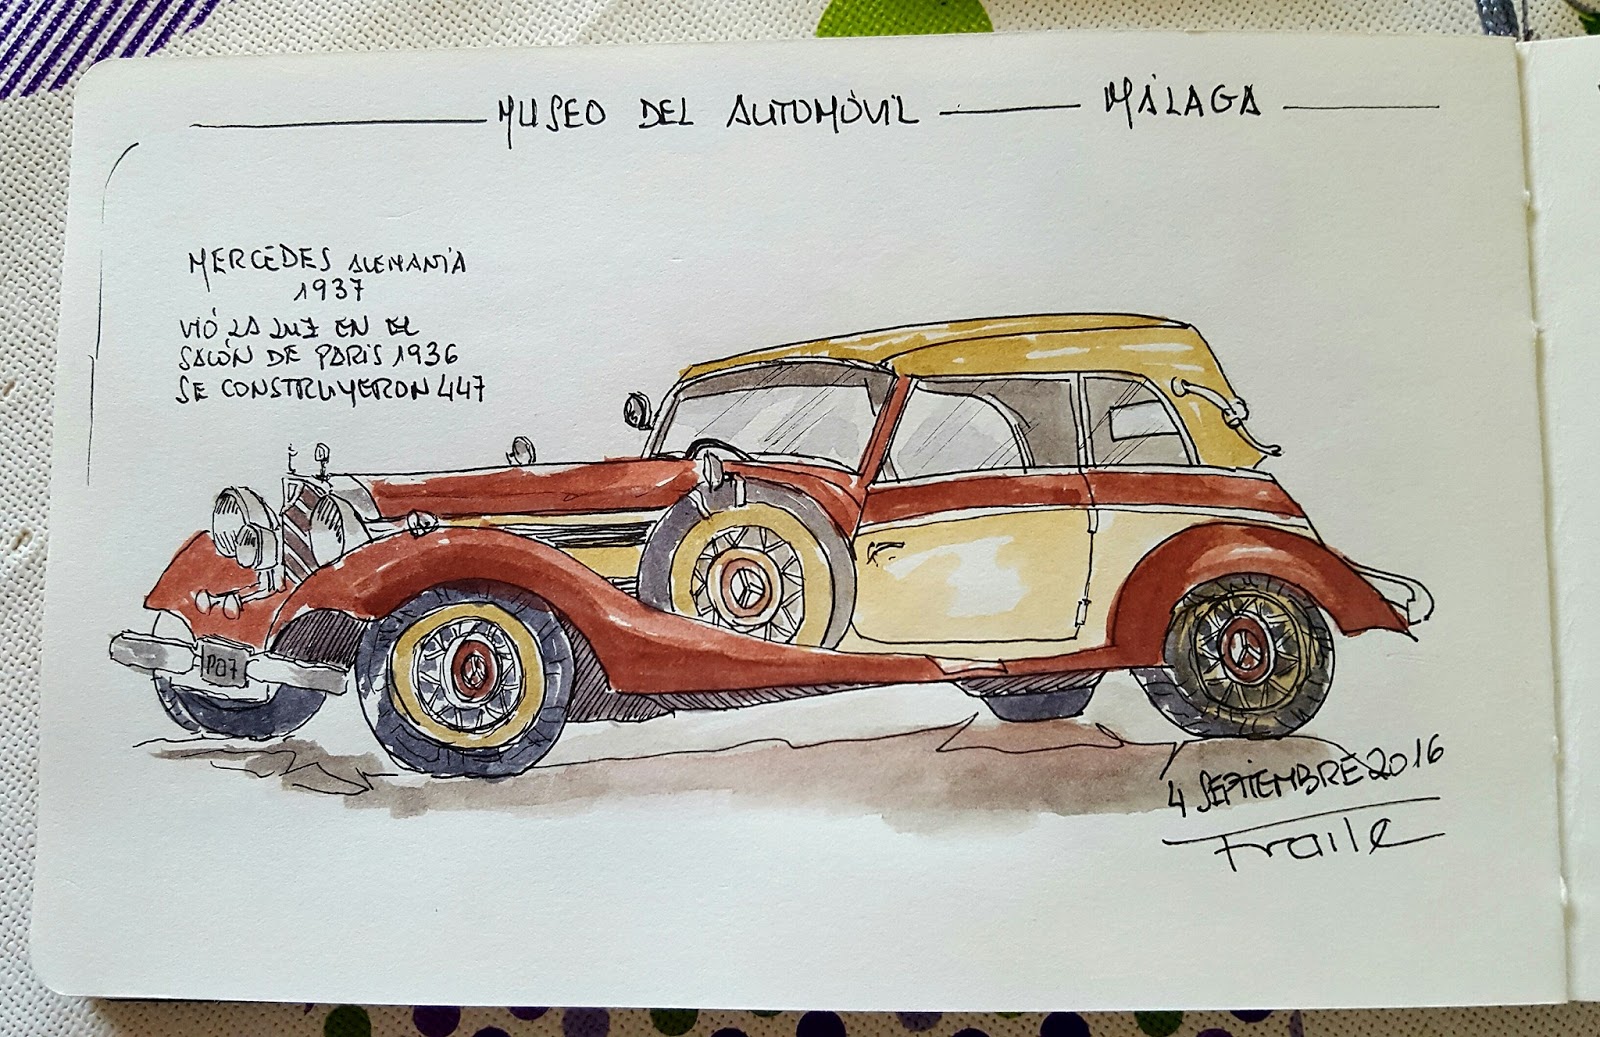 MUSEO DEL AUTOMÓVIL MÁLAGA
MERCEDES ALEMANIA
1937
VIÓ LA LUZ EN EL
SALÓN DE PARIS 1936
SE CONSTRUYERON 447
P07
4 SEPTIEMBRE 2016
Fraile